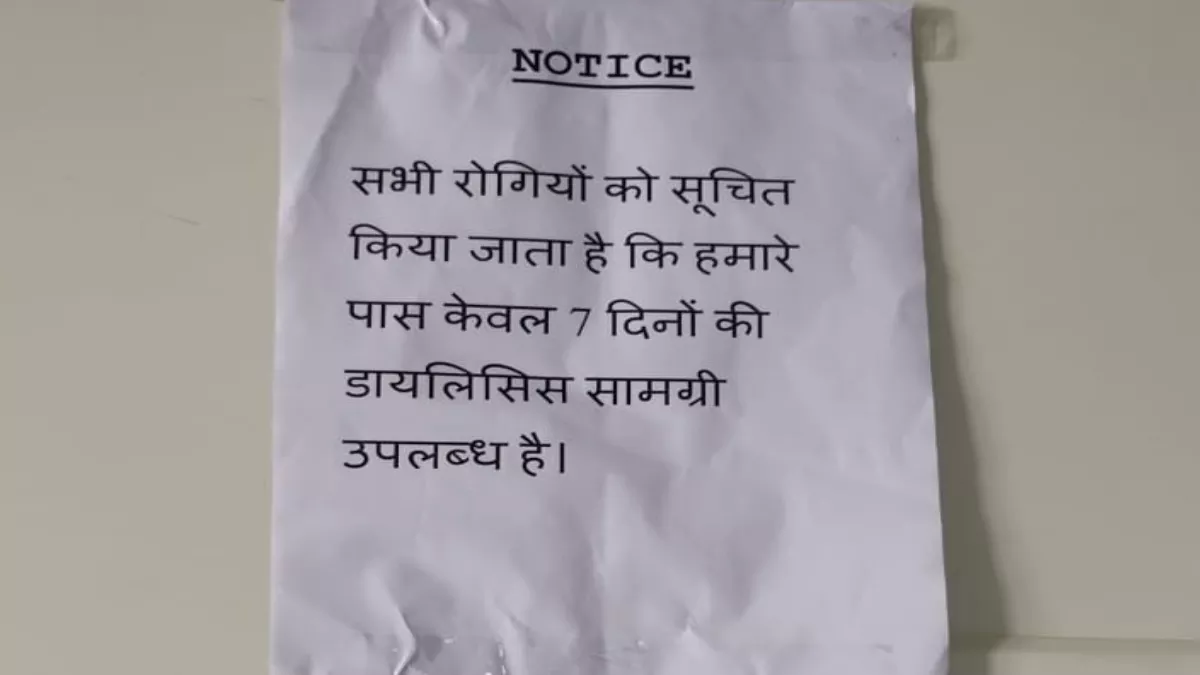 NOTICE
सभी रोगियों को सूचित
किया जाता है कि हमारे
पास केवल 7 दिनों की
डायलिसिस सामग्री
उपलब्ध है।